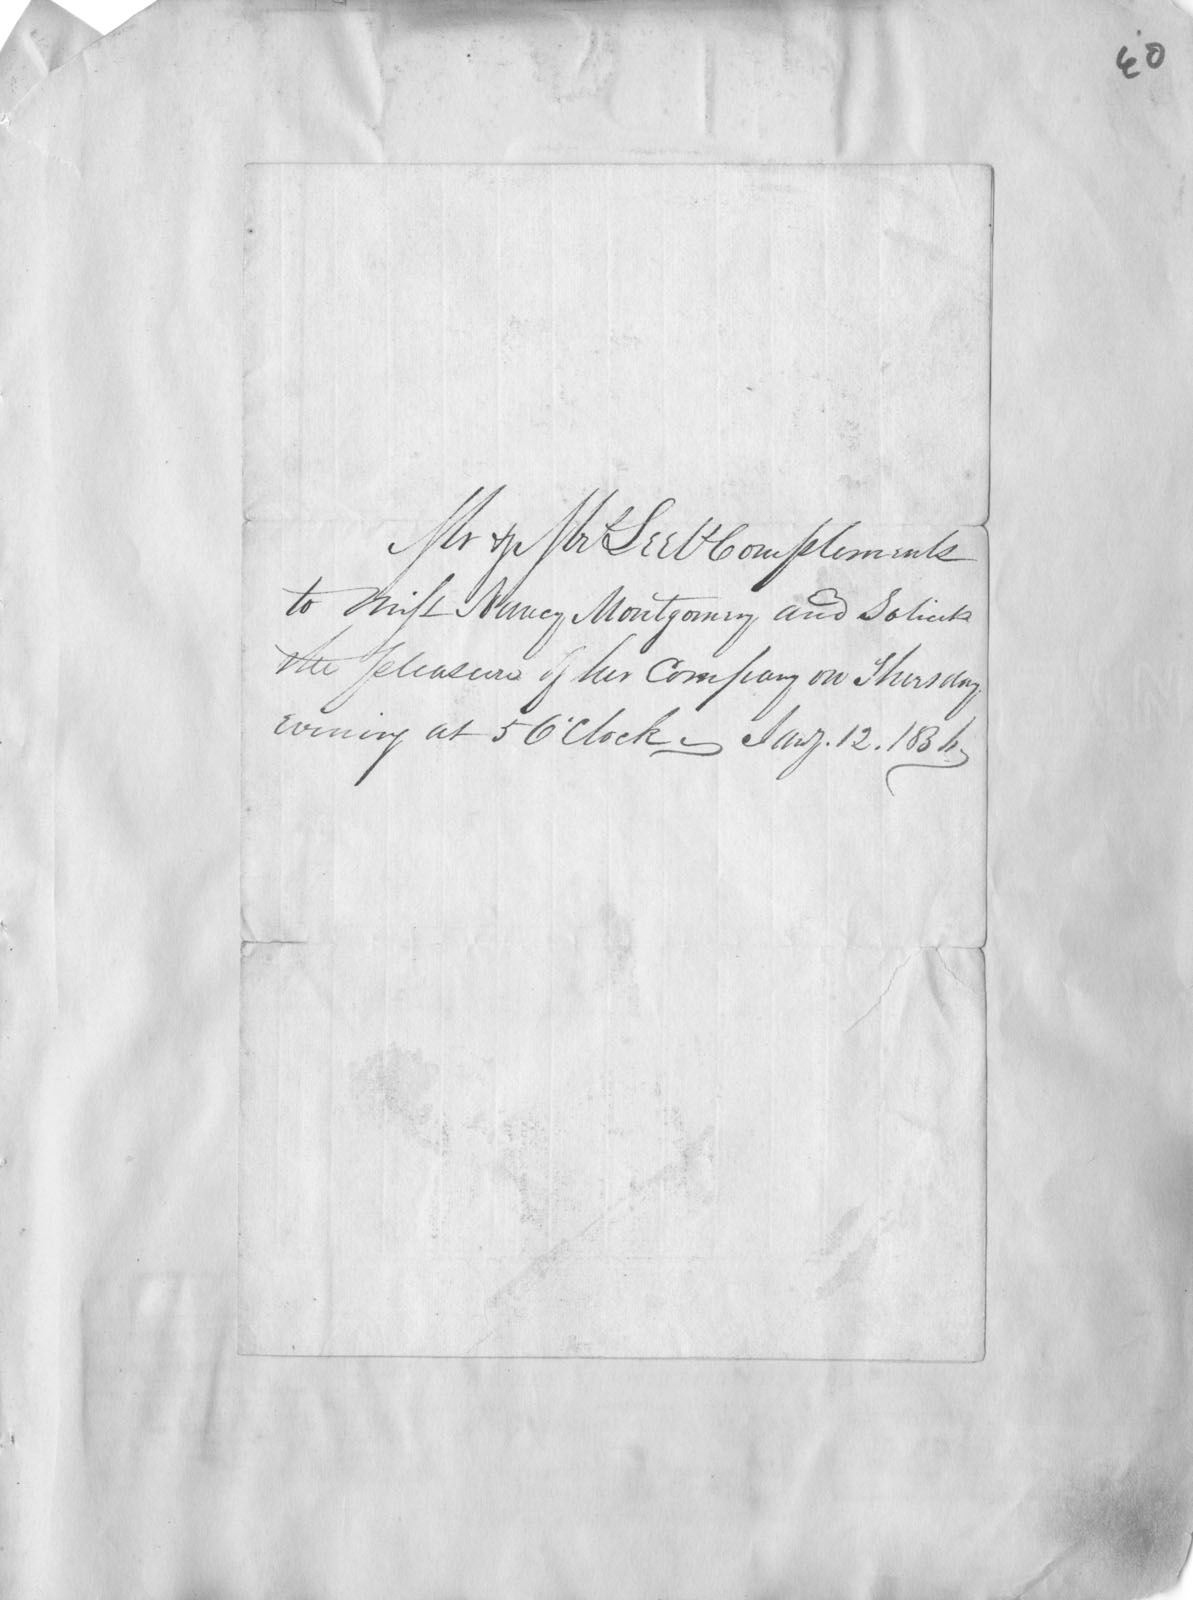 60
Mr & Mrs Leets Complements
to Miss Nancy Montgomery and Solicits
the pleasure of her Company on Thursday
evening at 5 O'Clock Jany. 12.